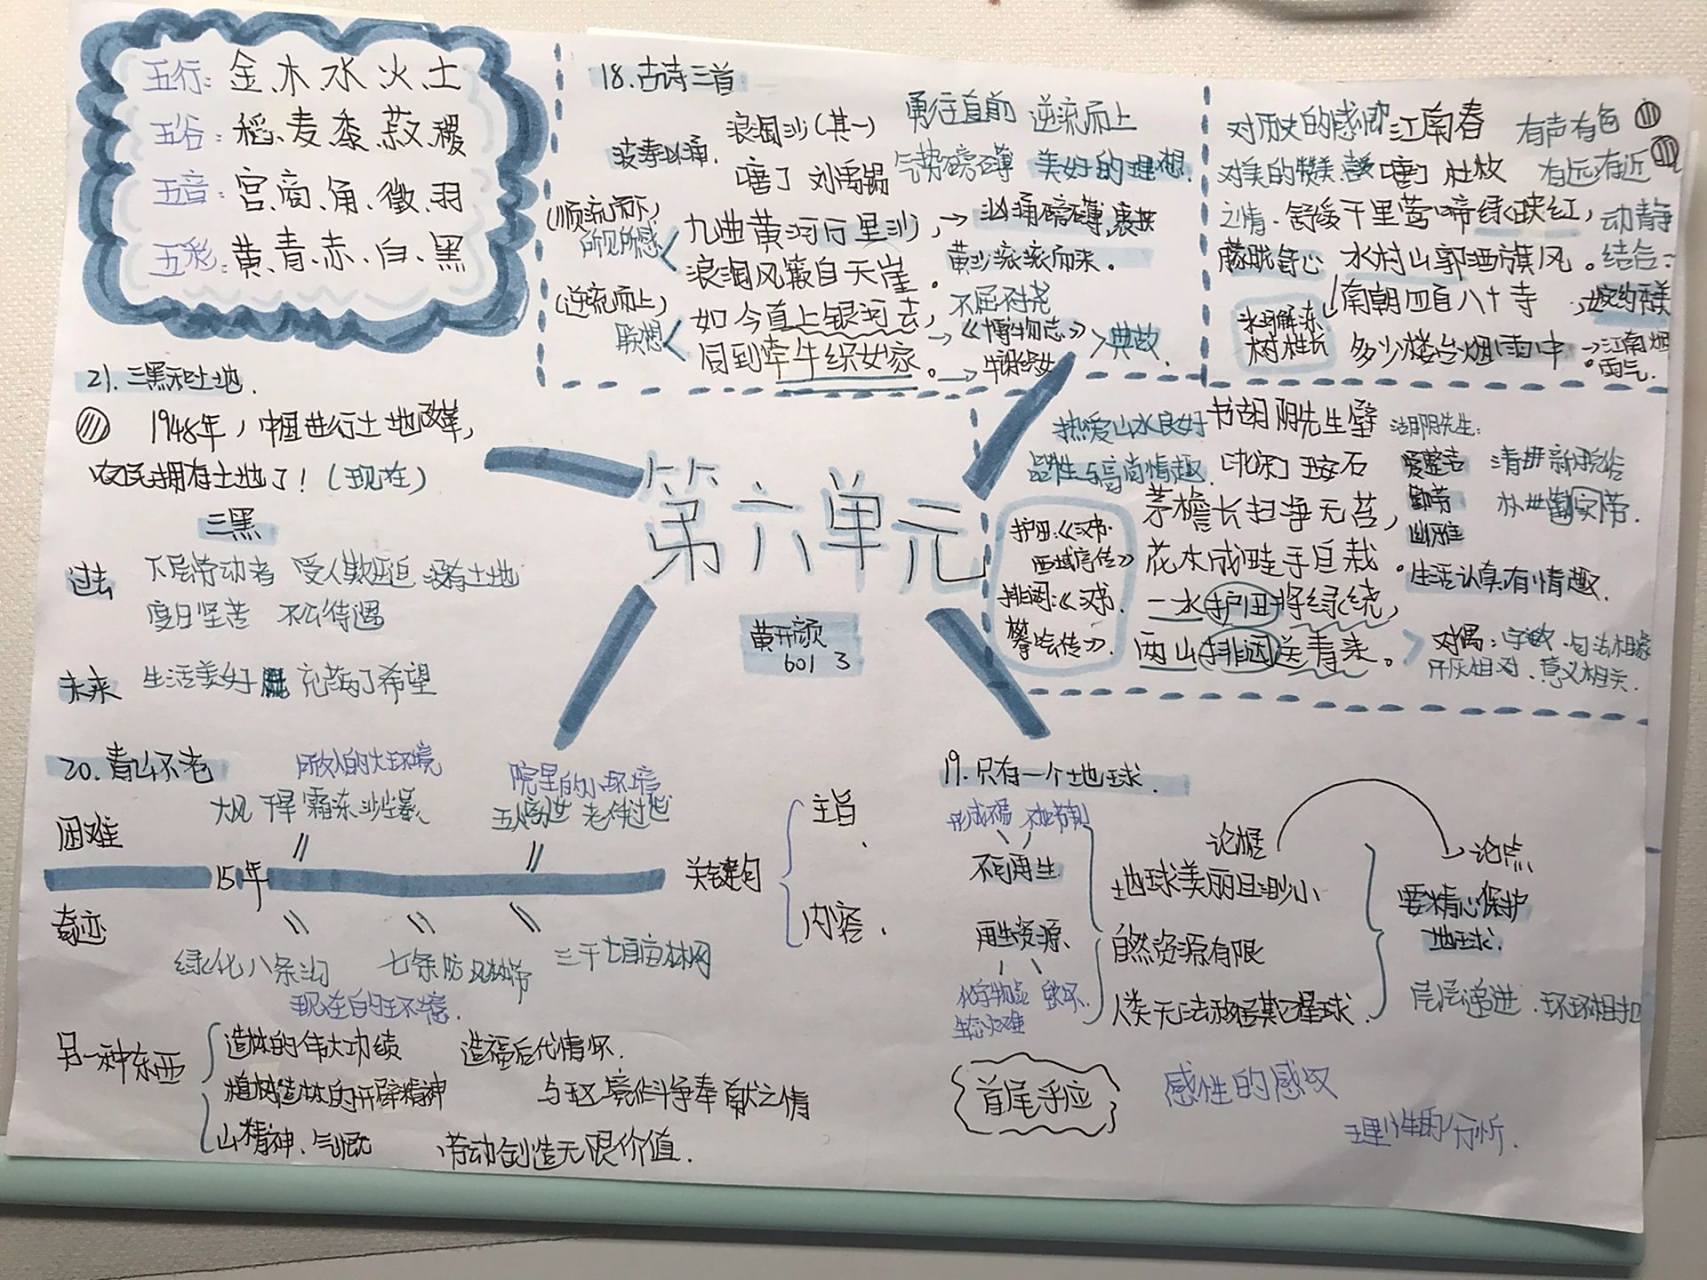 五行：金木水火土
五谷：稻、麦、黍、菽、稷
五音：宫、商、角、徵、羽
五彩：黄、青、赤、白、黑
18.古诗三首
浪淘沙(其一)
[唐] 刘禹锡
勇往直前 逆流而上
气势磅礴 美好的理想
(顺流而下)
所见所感
九曲黄河万里沙，
浪淘风簸自天涯。
黄沙滚滚而来。
(逆流而上)
联想
如今直上银河去，
同到牵牛织女家。
不屈不挠
《博物志》
牛郎织女
典故
对历史的感叹 江南春
有声有色
对美的赞美
[唐] 杜牧
有远有近
之情
千里莺啼绿映红，
动静
水村山郭酒旗风。
结合
南朝四百八十寺
多少楼台烟雨中
江南烟
雨气
热爱山水良好
品性与高尚情趣
书湖阴先生壁
[北宋] 王安石
茅檐长扫净无苔，
花木成畦手自栽。
一水护田将绿绕，
两山排闼送青来。
湖阴先生：
爱整洁
清进新脱俗
勤劳
朴进勤实劳.
幽雅
生活认真有情趣.
护田：《汉书·
西域序传》
排闼：《汉书.
樊哙传》.
对偶：字数、句法相象
意义相关.
第六单元
黄开颜
601 3
21.三黑和土地.
1948年，中国进行土地改革，
农民拥有土地了！(现在)
三黑
过去
下层劳动者 受人欺压迫 没有土地
度日坚苦 不公待遇
未来 生活美好 充满了希望
20.青山不老
所放人的大环境
院里的小环境
困难
大风 干旱 霜冻 沙尘暴、
老伴过世
15年
奇迹
绿化八条沟
七条防风林带
三千七百亩林网
现在白的环境.
关键句
主旨
内容.
另一种东西
造林的伟大功绩
造福后代情怀.
植树造林的开辟精神
与环境作斗争奉献之情
山精神、气概
劳动创造无限价值.
19.只有一个地球.
不可再生
再生资源、
化学物品
生态灾难
论据
论点
地球美丽且渺小
自然资源有限
人类无法移居其它星球.
要精心保护
地球.
层层递进.环环相扣
首尾呼应
感性的感叹
理性的分析.